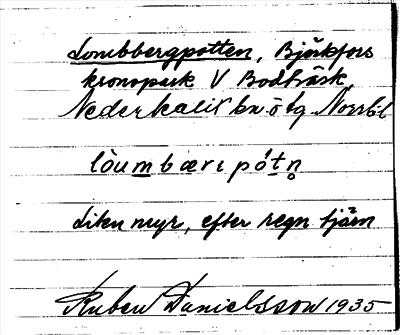 Lombbergpotten, Björkfors
kronopark V Bodträsk,
Nederkalix bn ö tg. Norrb.l
lòumbærɩpót̲n̥
Liten myr, efter regn tjärn
Ruben Danielsson 1935